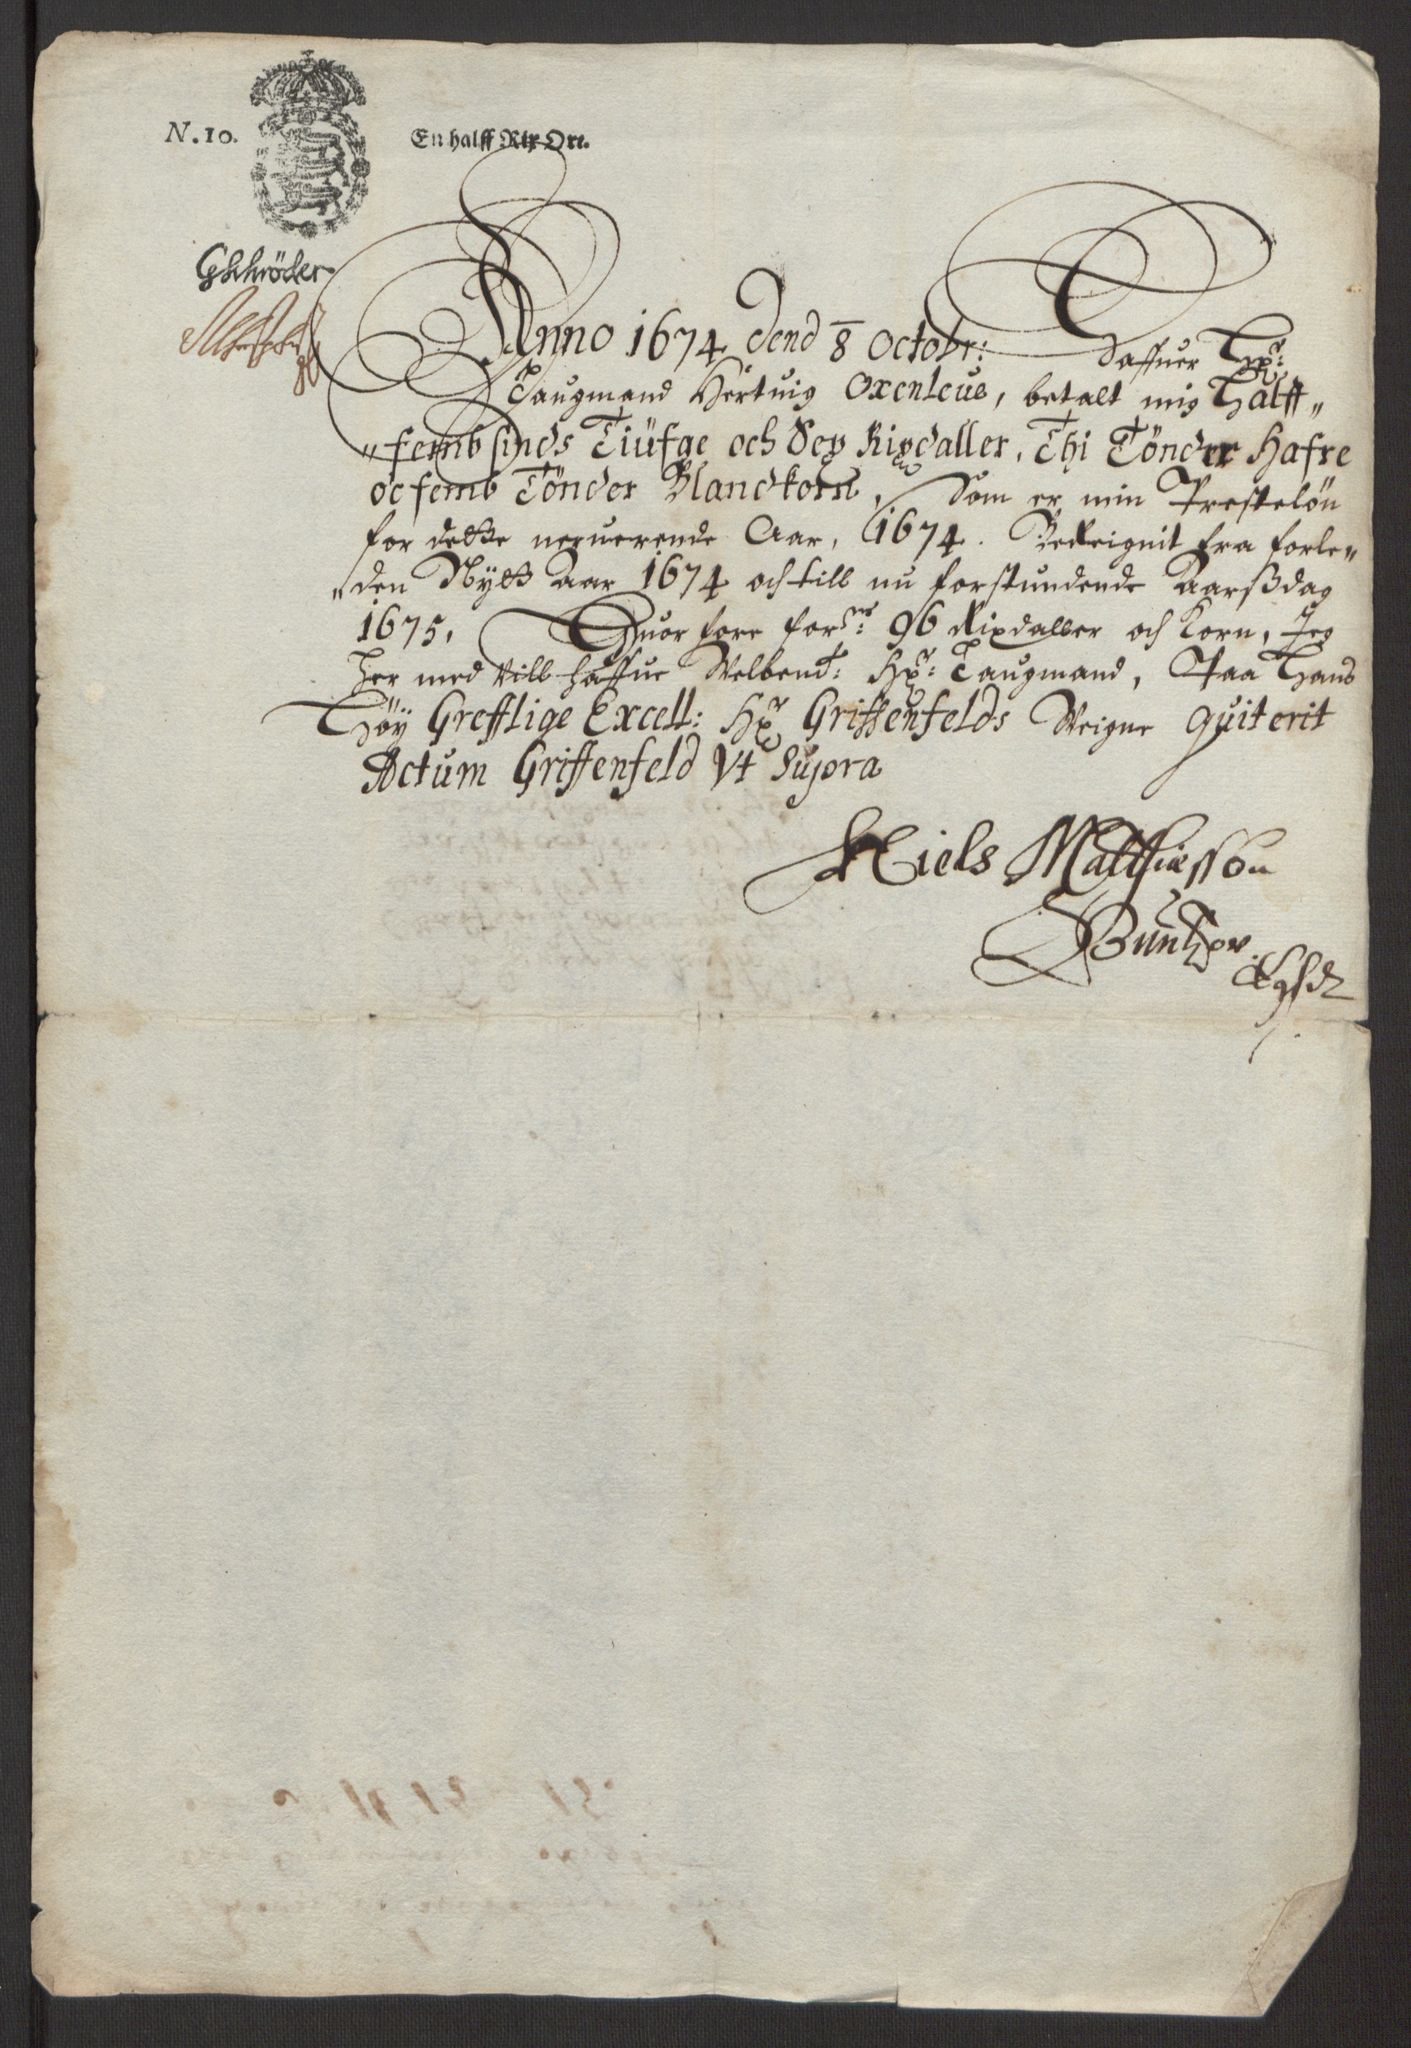 N. 10.
En halff Rtx Ort.
GSchröder
Anno 1674 Dend 8 Octobr: Haffuer Hr:
Laugmand Hertuig Oxenleue, betalt mig Halff„
„femb sinds Tiufge och Sex Rixdaller, Thi Tönder Hafre
oc femb Tönder Blandkorn, Som er min Presteløn
for dette neruerende Aar, 1674. Bereignit fra forle„
„den Nytt Aar 1674 och till nu forstundende Aarßdag
1675, Huor fore forne: 96 Rixdaller och Korn, Jeg
her med vill haffue Velbendt: Hr: Laugmand, Paa Hans
Høy Grefflige Excell: Hr Griffenfelds Veigne quiterit
Actum Griffenfeld Vt Supra
Niels Matthiesson